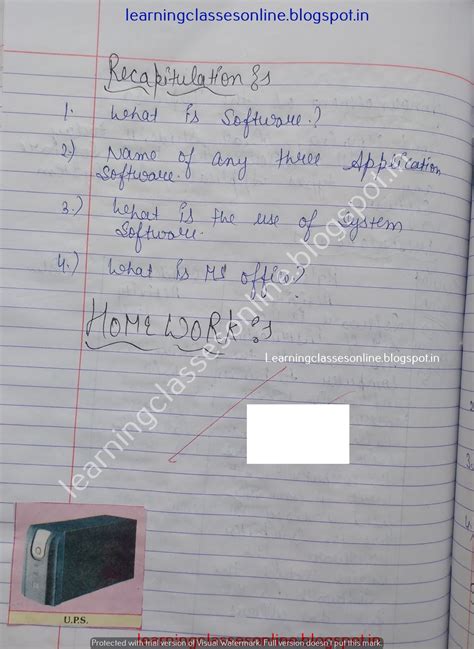 learningclassesonline.blogspot.in
Recapitulation :-
1. What is Software?
2) Name of any three Application
Software.
3.) What is the use of System
Software.
4.) What is MS office?
HOME WORK :-
Learningclassesonline.blogspot.in
learningclassesonline.blogspot.in
3.
4.
U.P.S.
Protected with trial version of Visual Watermark. Full version doesn't put this mark.
learningclassesonline.blogspot.in